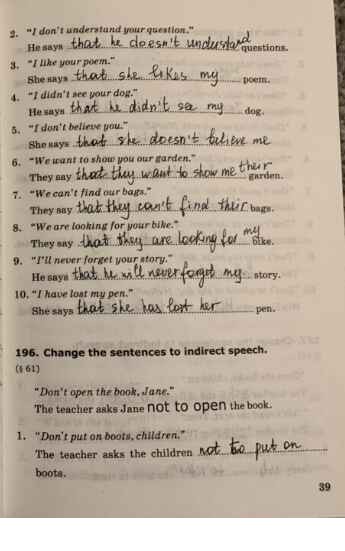 2. "I don't understand your question."
He says that he doesn't understand questions.
3. "I like your poem."
She says that she likes my poem.
4. "I didn't see your dog."
He says that he didn't see my dog.
5. "I don't believe you."
She says that she doesn't believe me
6. "We want to show you our garden."
They say that they want to show me their garden.
7. "We can't find our bags."
They say that they can't find their bags.
8. "We are looking for your bike."
They say that they are looking for my bike.
9. "I'll never forget your story."
He says that he will never forget my story.
10. "I have lost my pen."
She says that she has lost her pen.
196. Change the sentences to indirect speech.
(§ 61)
"Don't open the book, Jane."
The teacher asks Jane not to open the book.
1. "Don't put on boots, children."
The teacher asks the children not to put on
boots.
39